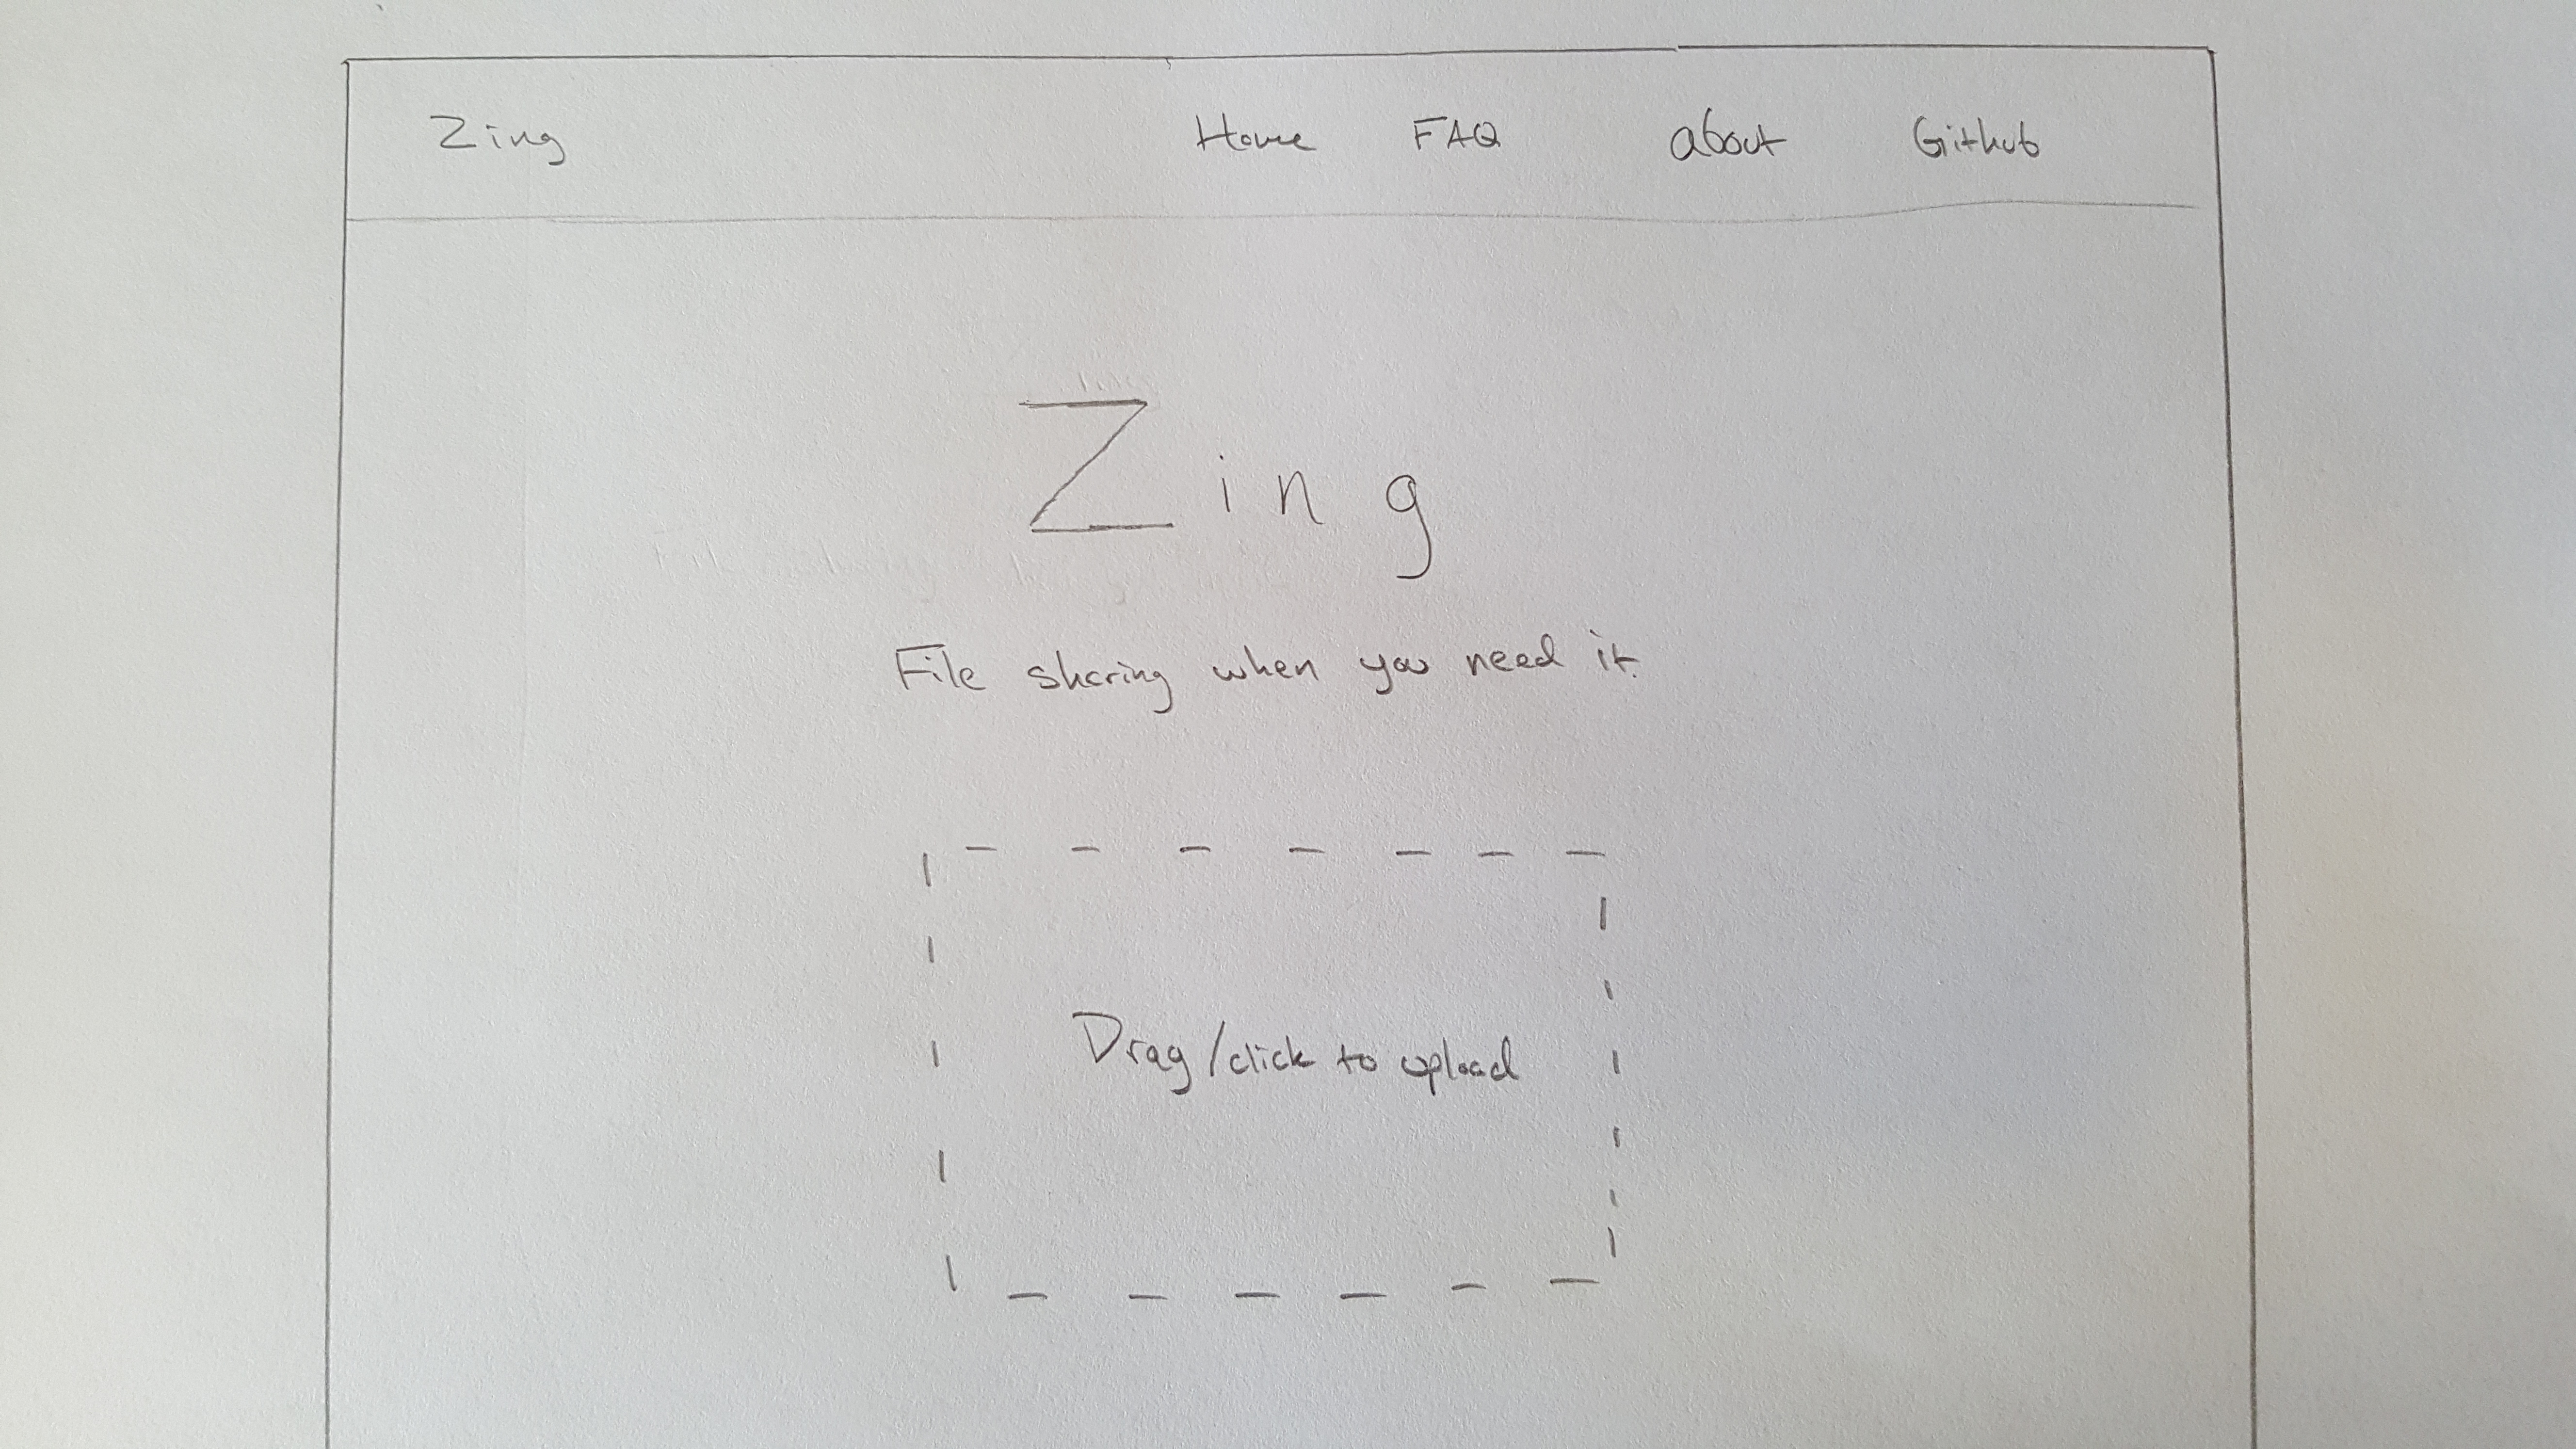 Zing Home FAQ about Github
Zing
File sharing when you need it.
Drag/click to upload